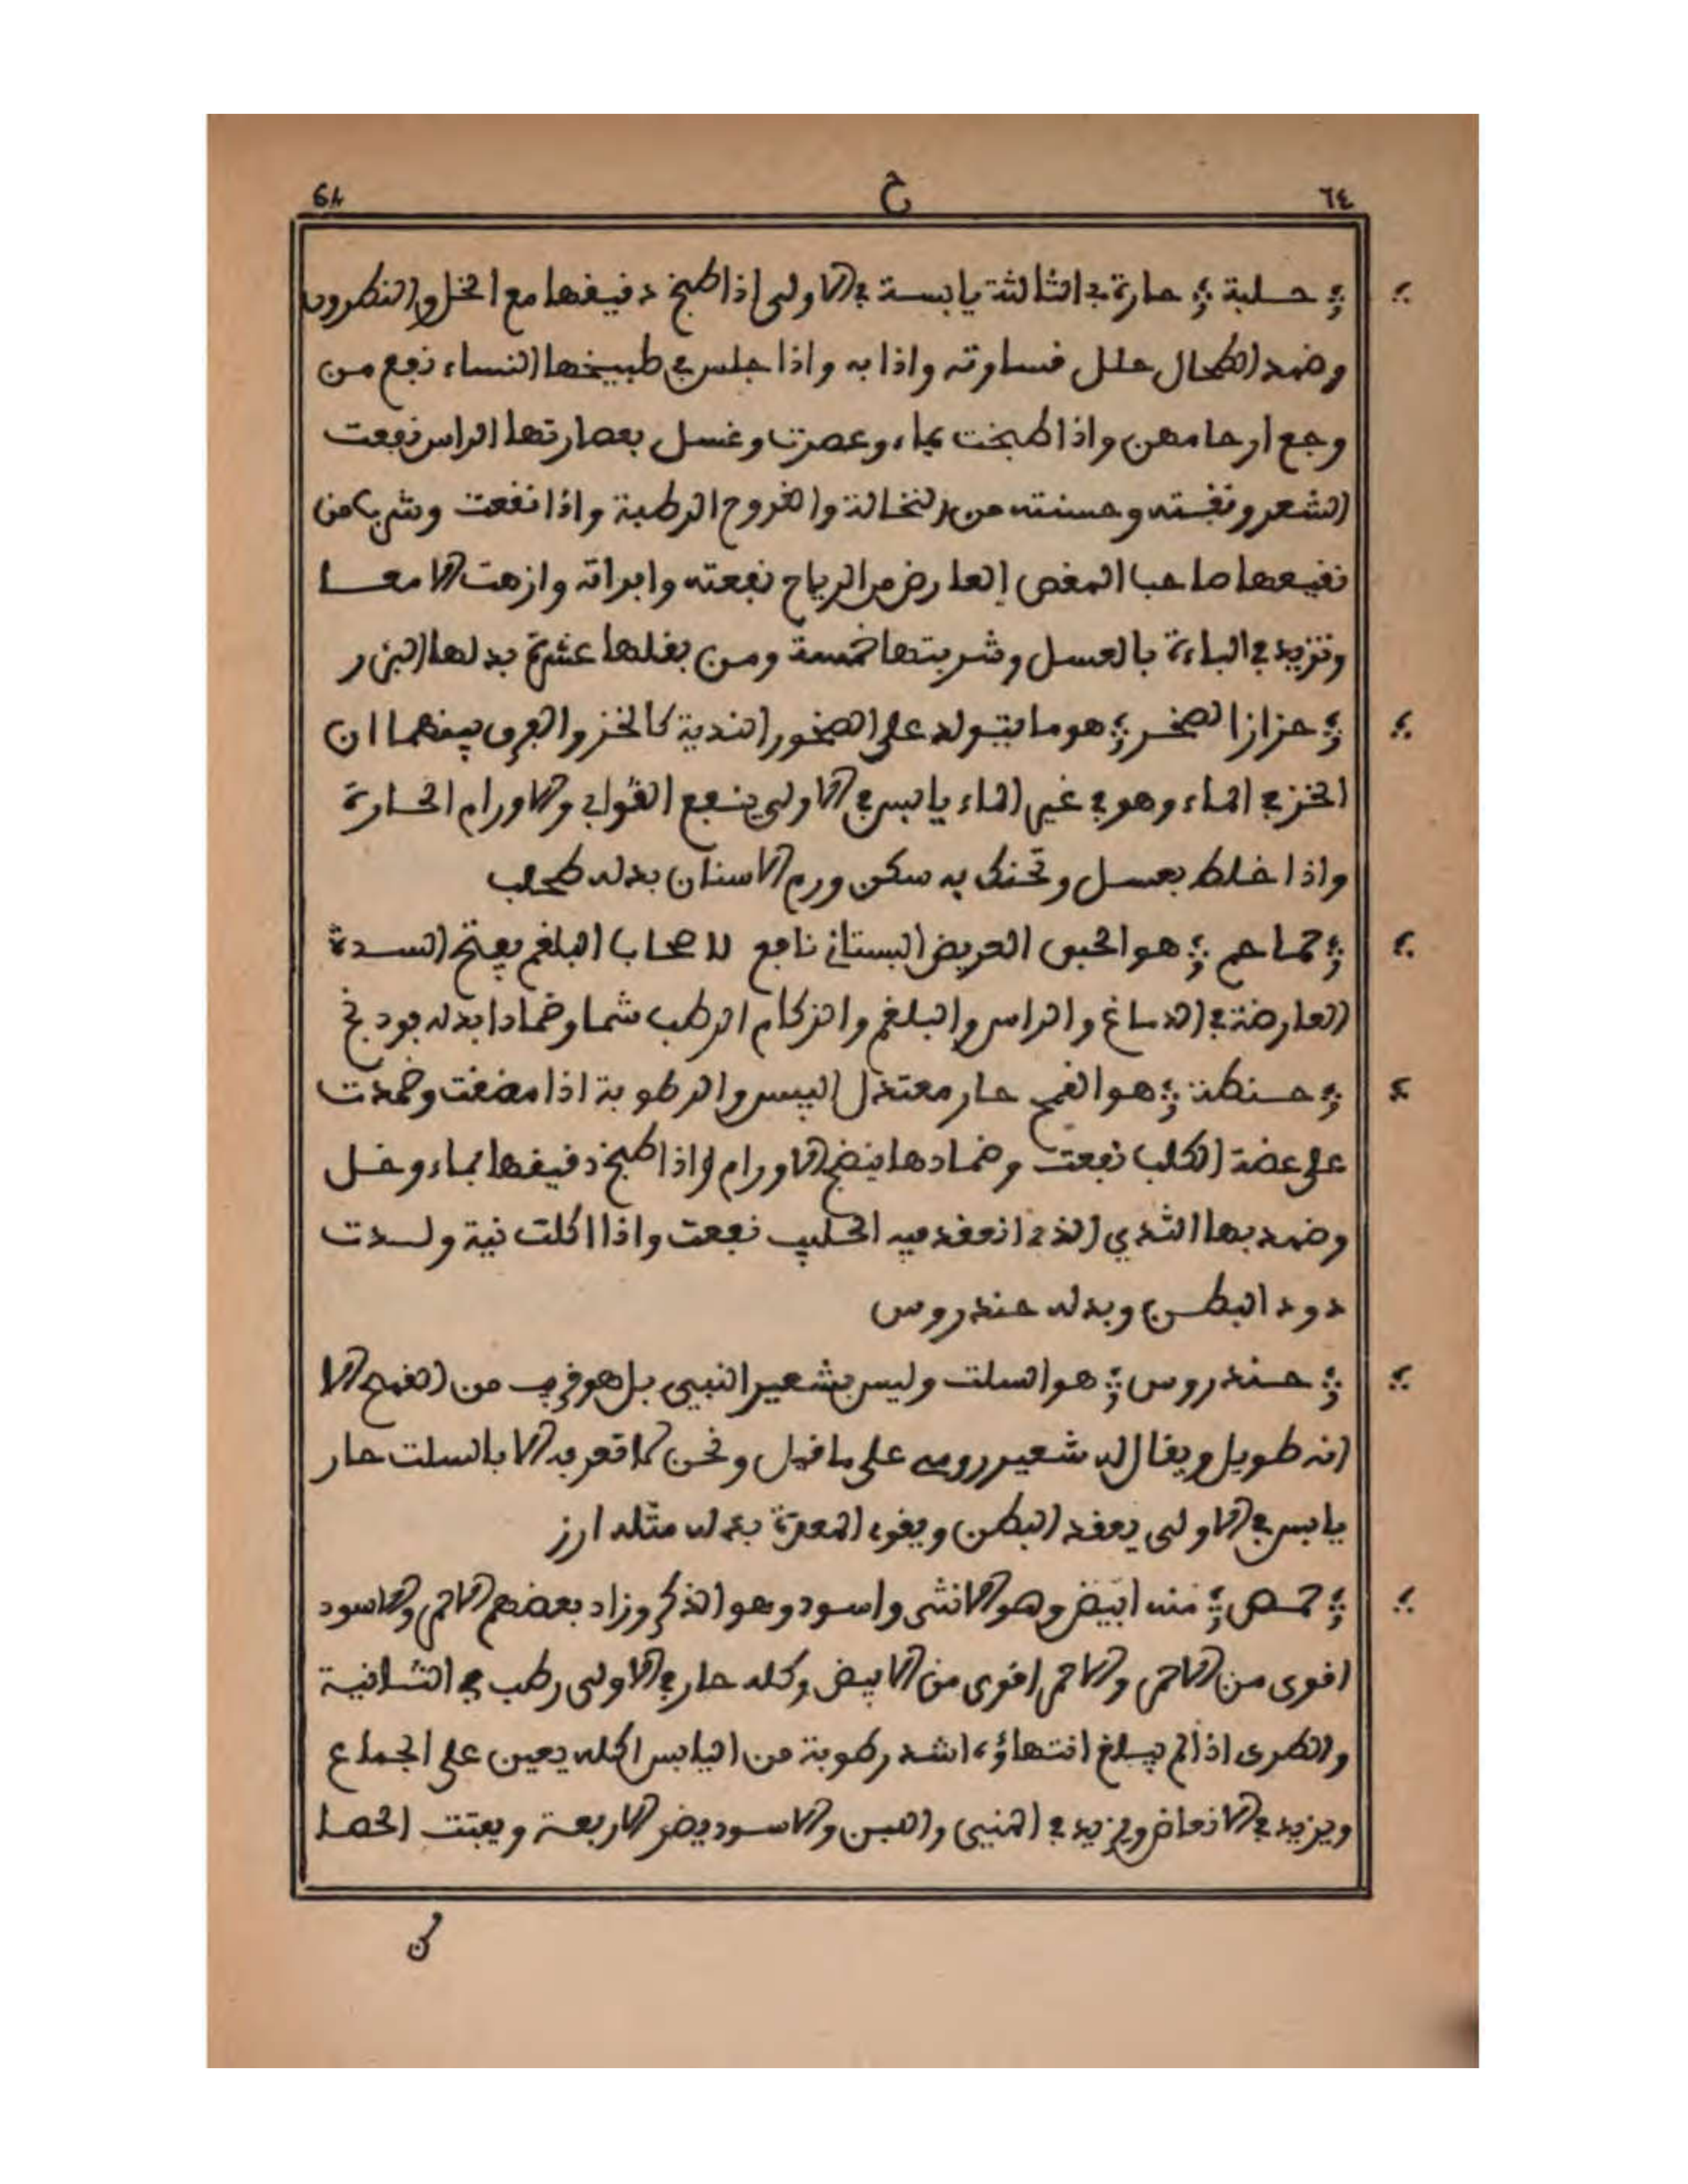 ٦٤ ح 64
حلبة حارة في الثالثة يابسة في الاولى اذا طبخ دقيقها مع الخل والنطرون
وضمد الطحال حلل قساوته واذابه واذا جلس في طبيخها النساء نفع من
وجع ارحامهن واذا طبخت بماء وعصرت وغسل بعصارتها الراس نفعت
الشعر ونقته وحسنته من النخالة والقروح الرطبة واذا نقعت وشرب من
نقيعها صاحب المغص العارض من الرياح نفعته وابراته وازهت الامعا
وتزيد في الباءة بالعسل وشربتها خمسة ومن بقلها عشرة بدلها البزر
حزاز الصخر هو ما يتولد على الصخور الندية كالخز والفرق بينهما ان
الخز في الماء وهو في غير الماء يابس في الاولى ينفع القوابي والاورام الحارة
واذا خلط بعسل وتحنك به سكن ورم الاسنان بدله طحلب
حماحم هو الحبق العريض البستاني نافع لاصحاب البلغم يفتح السدة
العارضة في الدماغ والراس والبلغم والزكام الرطب شما وضمادا بدله فودنج
حنطة هو القمح حار معتدل اليبس والرطوبة اذا مضغت وضمدت
على عضة الكلب نفعت وضمادها ينضج الاورام واذا طبخ دقيقها بماء وخل
وضمد بها الثدي الذي انعقد فيه الحليب نفعت واذا اكلت نية ولدت
دود البطن وبدله حندروس
حندروس هو السلت وليس بشعير النبي بل هو قريب من القمح الا
انه طويل ويقال له شعير رومي على ما قيل ونحن لا نعرفه الا بالسلت حار
يابس في الاولى يعقد البطن ويقوي المعدة بدله مثله ارز
حمص منه ابيض وهو الانثى واسود وهو الذكر وزاد بعضهم الاحمر والاسود
اقوى من الاحمر والاحمر اقوى من الابيض وكله حار في الاولى رطب في الثانية
والطري اذا لم يبلغ انتهاؤه اشد رطوبة من اليابس اكله يعين على الجماع
ويزيد في الانعاض ويزيد في المني واللبن والاسود يضر الاربعة ويفتت الحصا